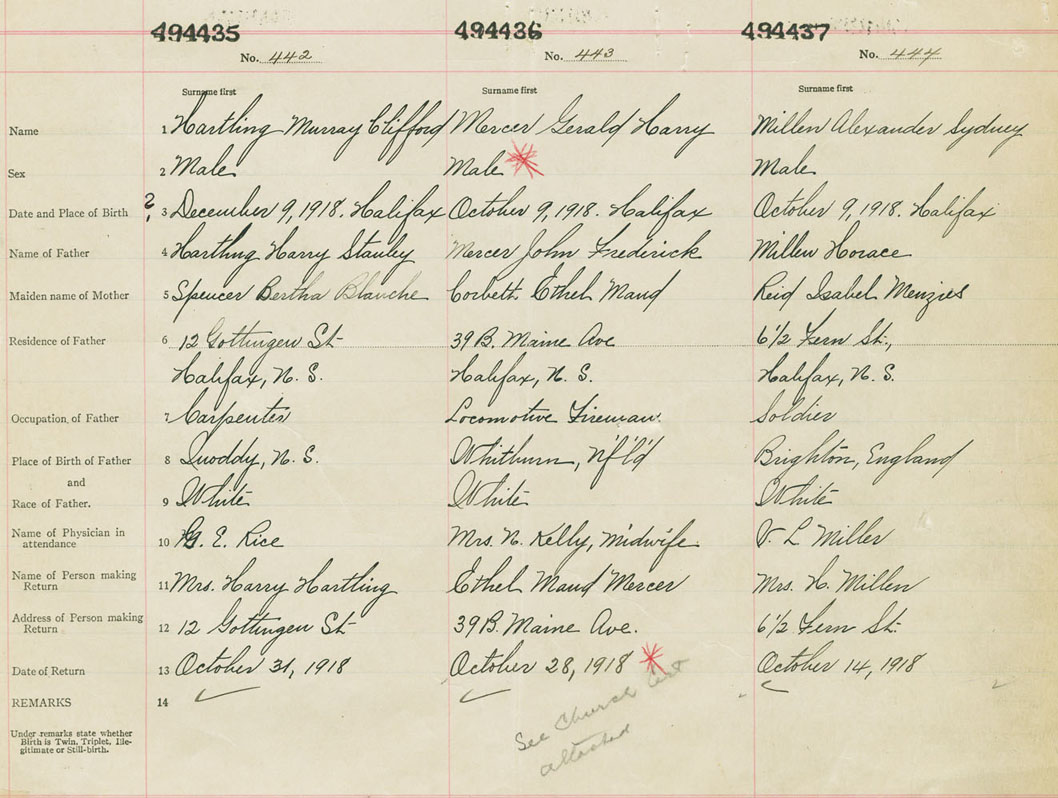 494435 494436 494437
No. 442 No. 443 No. 444
Surname first Surname first Surname first
Name 1 Hartling Murray Clifford Mercer Gerald Harry Millen Alexander Sydney
Sex 2 Male Male Male
Date and Place of Birth ? 3 December 9, 1918. Halifax October 9, 1918. Halifax October 9, 1918. Halifax
Name of Father 4 Hartling Harry Stanley Mercer John Frederick Millen Horace
Maiden name of Mother 5 Spencer Bertha Blanche Corbett Ethel Maud Reid Isabel Menzies
Residence of Father 6 12 Gottingen St 39 B. Maine Ave 6 1/2 Fern St.,
Halifax, N. S. Halifax, N. S. Halifax, N. S.
Occupation of Father 7 Carpenter Locomotive Fireman Soldier
Place of Birth of Father 8 Quoddy, N. S. Whitburn, N'f'l'd Brighton, England
and
Race of Father. 9 White White White
Name of Physician in
attendance 10 G. E. Rice Mrs. N. Kelly, Midwife V. L Miller
Name of Person making
Return 11 Mrs. Harry Hartling Ethel Maud Mercer Mrs. H. Millen
Address of Person making
Return 12 12 Gottingen St 39 B. Maine Ave. 6 1/2 Fern St.
Date of Return 13 October 31, 1918 October 28, 1918 October 14, 1918
REMARKS 14
See Church Cert
attached
Under remarks state whether
Birth is Twin, Triplet, Ille-
gitimate or Still-birth.